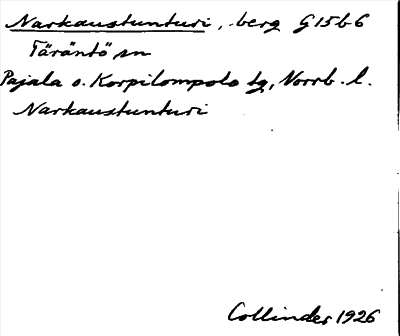 Narkaustunturi, berg G15b6
Täräntö sn
Pajala o. Korpilompolo tg, Norrb. l.
Narkaustunturi
Collinder 1926